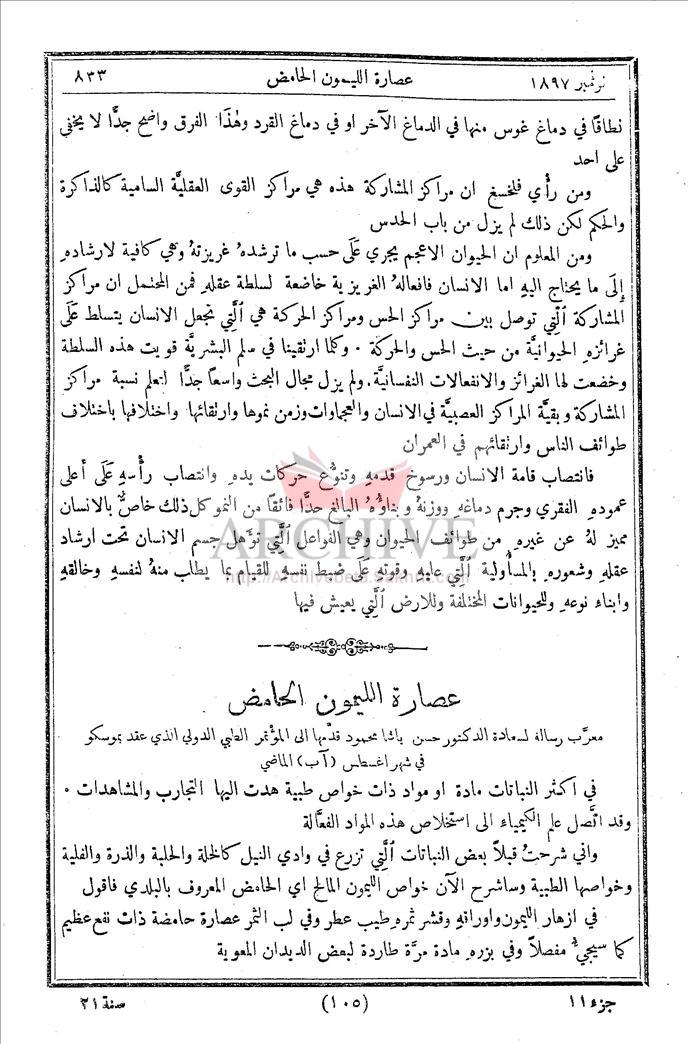 نوفمبر ١٨٩٧ عصارة الليمون الحامض ٨٣٣
نطاقًا في دماغ غوس منها في الدماغ الآخر او في دماغ القرد وهٰذَا الفرق واضح جدًّا لا يخفى
على احد
ومن رأْي فلخسغ ان مراكز المشاركة هذه هي مراكز القوى العقليَّة السامية كالذاكرة
والحكم لكن ذلك لم يزل من باب الحدس
ومن المعلوم ان الحيوان الاعجم يجري عَلَى حسب ما ترشدهُ غريزتهُ وهي كافية لارشادهِ
إِلَى ما يحتاج اليهِ اما الانسان فافعالهُ الغريزية خاضعة لسلطة عقلهِ فمن المحتمل ان مراكز
المشاركة ٱلَّتِي توصل بين مراكز الحس ومراكز الحركة هي ٱلَّتِي تجعل الانسان يتسلط عَلَى
غرائزهِ الحيوانيَّة من حيث الحس والحركة ٠ وكلما ارتقينا في سلم البشريَّة قويت هذه السلطة
وخضعت لها الغرائز والانفعالات النفسانيَّة. ولم يزل مجال البحث واسعًا جدًّا لتعلم نسبة مراكز
المشاركة وبقيَّة المراكز العصبيَّة في الانسان والعجماوات وزمن نموها وارتقائها واختلافها باختلاف
طوائف الناس وارتقائهم في العمران
فانتصاب قامة الانسان ورسوخ قدمهِ وتنوُّع حركات يدهِ وانتصاب رأْسهِ عَلَى أعلى
عمودهِ الفقري وجرم دماغهِ ووزنهُ وبناؤُهُ البالغ حدًّا فائقًا من النمو كل ذلك خاصٌّ بالانسان
مميز لهُ عن غيرهِ من طوائف الحيوان وهي الفواعل ٱلَّتِي تؤَهل جسم الانسان تحت ارشاد
عقلهِ وشعورهِ بالمسأولية ٱلَّتِي عليهِ وقوتهِ عَلَى ضبط نفسهِ للقيام بما يطلب منهُ لنفسهِ وخالقهِ
وابناء نوعهِ وللحيوانات المختلفة وللارض ٱلَّتِي يعيش فيها
ARCHIVE
http://Archivebeta.Sakhrit.com
عصارة الليمون الحامض
معرَّب رسالة لسعادة الدكتور حسن باشا محمود قدَّمها الى المؤتمر الطبي الدولي الذي عقد بموسكو
في شهر اغسطس (آب) الماضي
في اكثر النباتات مادة او مواد ذات خواص طبية هدت اليها التجارب والمشاهدات ٠
وقد اتَّصل علم الكيمياء الى استخلاص هذه المواد الفعَّالة
واني شرحتُ قبلاً بعض النباتات ٱلَّتِي تزرع في وادي النيل كالخلة والحلبة والذرة والفلية
وخواصها الطبية وساشرح الآن خواص الليمون المالح اي الحامض المعروف بالبلدي فاقول
في ازهار الليمون واوراقهِ وقشر ثمرهِ طيب عطر وفي لب الثمر عصارة حامضة ذات نفع عظيم
كما سيجيءُ مفصلاً وفي بزره مادة مرَّة طاردة لبعض الديدان المعوية
جزء ١١ (١٠٥) سنة ٢١